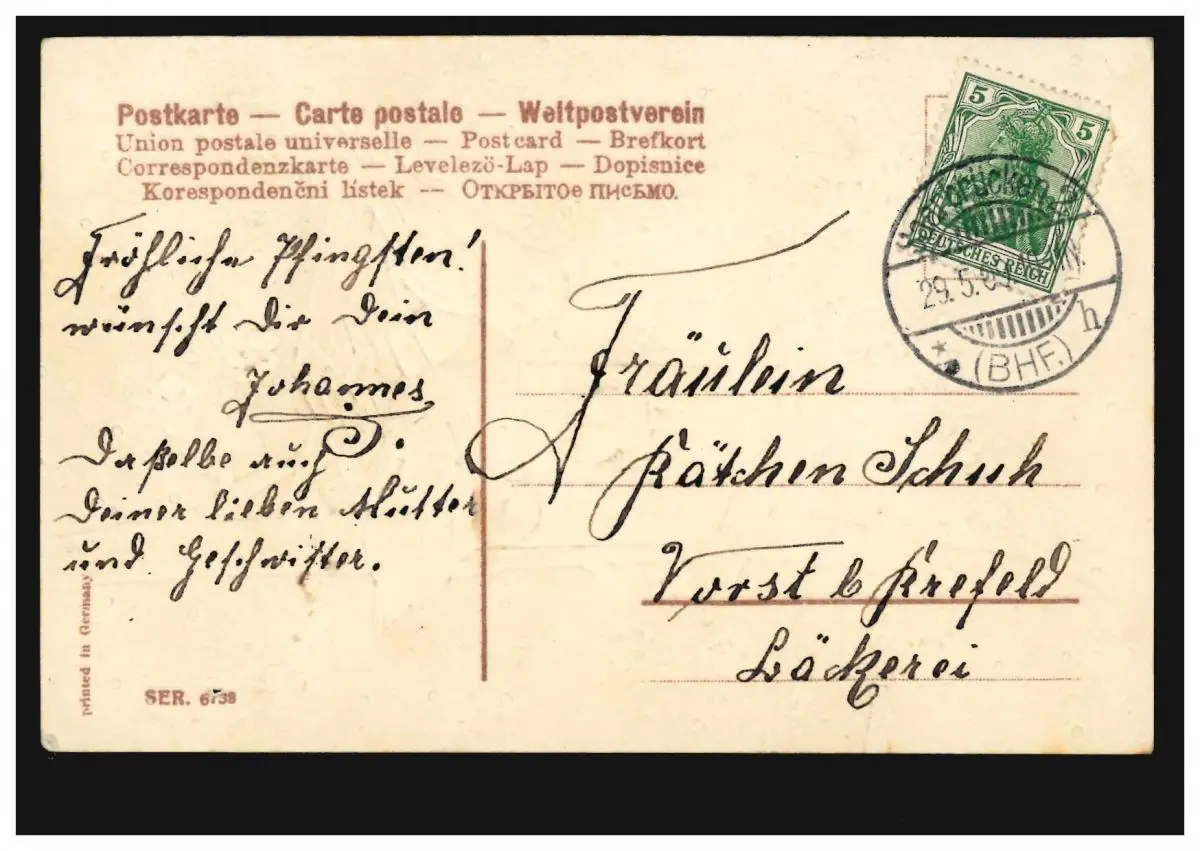 Postkarte — Carte postale — Weltpostverein
Union postale universelle — Postcard — Brefkort
Correspondenzkarte — Levelezö-Lap — Dopisnice
Korespondenčni lístek — Открытое письмо.
5 5
DEUTSCHES REICH
29. 5.
(BHF.)
h
Fröhliche Pfingsten!
wünscht Dir Dein
Johannes
Daßelbe auch
Deiner lieben Mutter
und Geschwister.
Fräulein
Kätchen Schuh
Vorst b Krefeld
Bäckerei
printed in Germany
SER. 6738